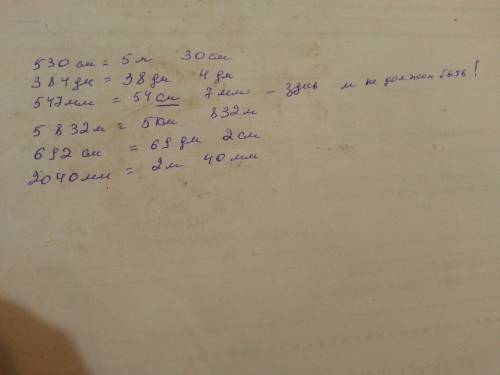 530 см = 5 м 30 см
384 дм = 38 дм 4 дм
547 мм = 54 см 7 мм - здесь м не должен быть!
5 832 м = 5 км 832 м
692 см = 69 дм 2 см
2040 мм = 2 м 40 мм